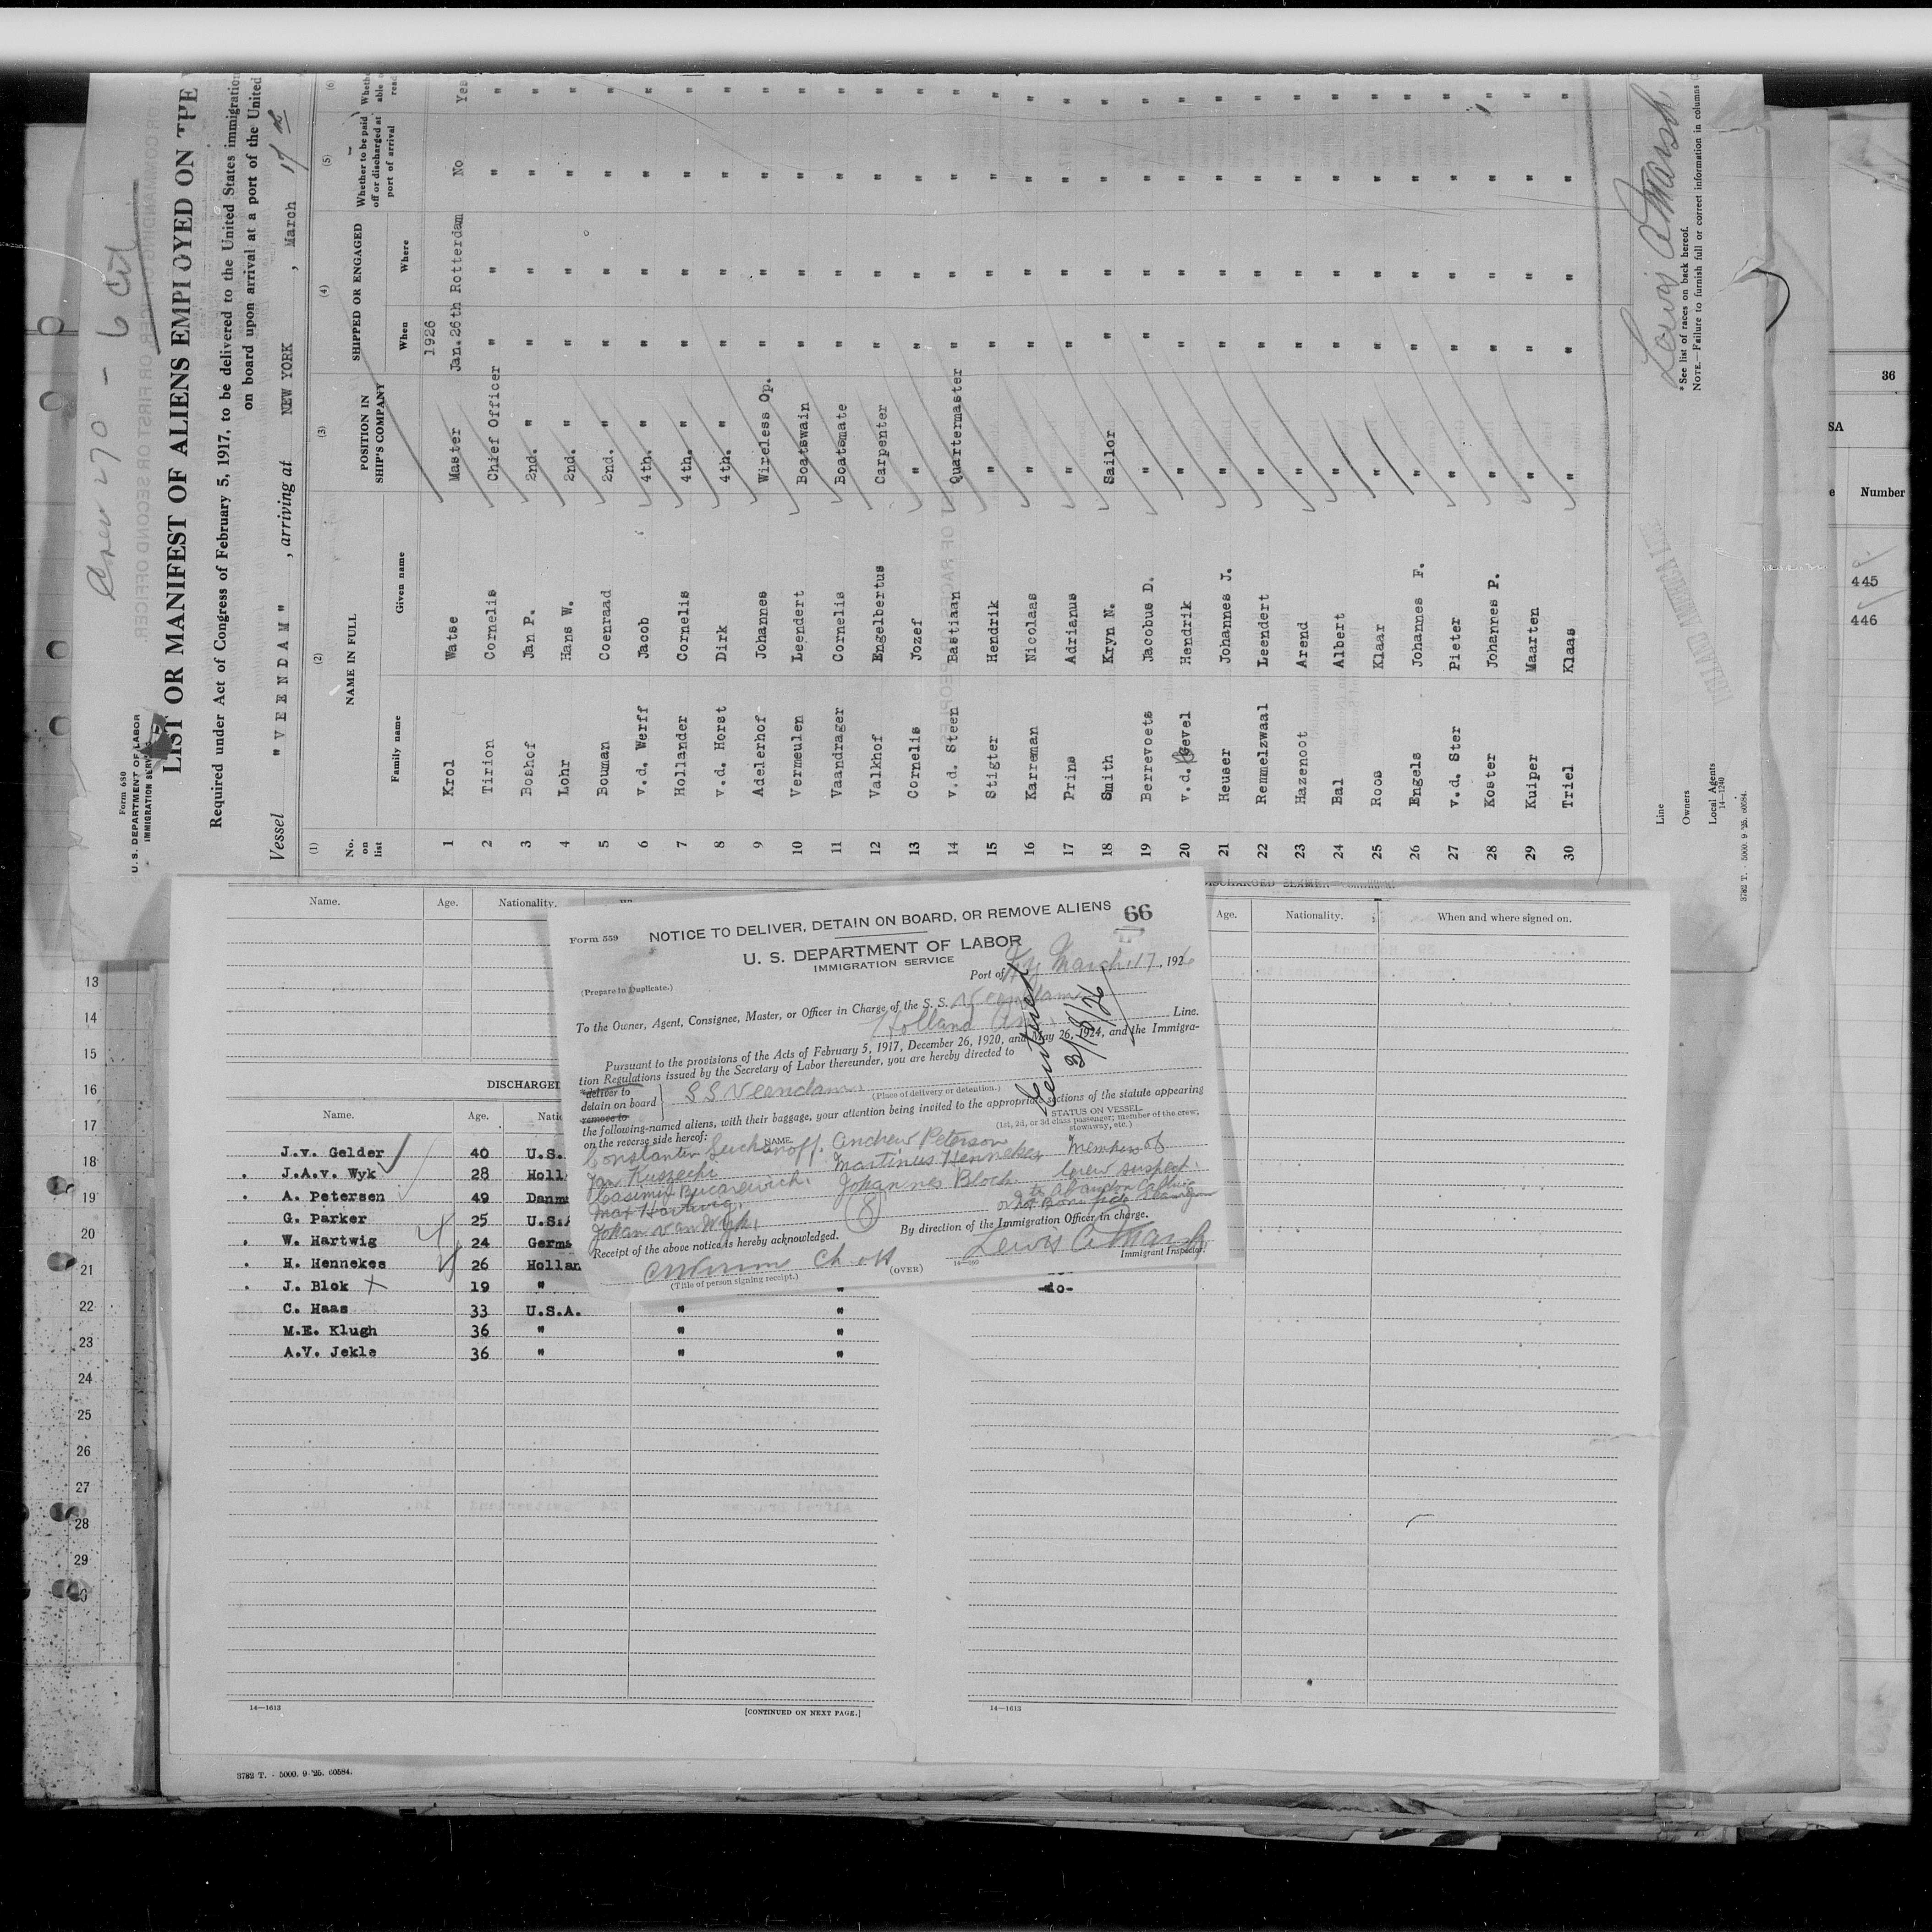 Crew 270 - 6 Cit
Form 680
U. S. DEPARTMENT OF LABOR
IMMIGRATION SERV
LIST OR MANIFEST OF ALIENS EMPLOYED ON THE
Required under Act of Congress of February 5, 1917, to be delivered to the United States immigration
on board upon arrival at a port of the United
Vessel "VEENDAM", arriving at NEW YORK, March 17
(1) (2) (3) (4) (5) (6)
No. on list NAME IN FULL POSITION IN SHIP'S COMPANY SHIPPED OR ENGAGED Whether to be paid off or discharged at port of arrival
Family name Given name When Where
1926
1 Krol Watse Master Jan. 26th Rotterdam No Yes
2 Tirion Cornelis Chief Officer " " " "
3 Boshof Jan P. 2nd. " " " " "
4 Lohr Hans W. 2nd. " " " " "
5 Bouman Coenraad 2nd. " " " " "
6 v.d. Werff Jacob 4th. " " " " "
7 Hollander Cornelis 4th. " " " " "
8 v.d. Horst Dirk 4th. " " " " "
9 Adelerhof Johannes Wireless Op. " " " "
10 Vermeulen Leendert Boatswain " " " "
11 Vaandrager Cornelis Boatsmate " " " "
12 Valkhof Engelbertus Carpenter " " " "
13 Cornelis Jozef " " " " "
14 v.d. Steen Bastiaan Quartermaster " " " "
15 Stigter Hendrik " " " " "
16 Karreman Nicolaas " " " " "
17 Prins Adrianus " " " " "
18 Smith Kryn N. Sailor " " " "
19 Berrevoets Jacobus D. " " " " "
20 v.d. Gevel Hendrik " " " " "
21 Heuser Johannes J. " " " " "
22 Remmelzwaal Leendert " " " " "
23 Hazenoot Arend " " " " "
24 Bal Albert " " " " "
25 Roos Klaar " " " " "
26 Engels Johannes F. " " " " "
27 v.d. Ster Pieter " " " " "
28 Koster Johannes P. " " " " "
29 Kuiper Maarten " " " " "
30 Triel Klaas " " " " "
Line
Owners
Local Agents
14—1240
Lewis A Marsh
* See list of races on back hereof.
NOTE.—Failure to furnish full or correct information in columns
3782 T. - 5000. 9-'25. 60584.
HOLLAND AMERICA LINE
36
SA
Number
445
446
13
14
15
16
17
18
19
20
21
22
23
24
25
26
27
28
29
30
Name. Age. Nationality.
Age. Nationality. When and where signed on.
DISCHARGED
Name. Age.
J.v. Gelder 40 U.S.
J.A.v. Wyk 28 Holl
A. Petersen 49 Danm
G. Parker 25 U.S.A
W. Hartwig 24 Germa
H. Hennekes 26 Hollan
J. Blok 19 " " -do-
C. Haas 33 U.S.A. " "
M.E. Klugh 36 " " "
A.V. Jekle 36 " " "
14—1613
[CONTINUED ON NEXT PAGE.]
14—1613
3782 T. - 5000. 9-'25. 60584.
Form 559
NOTICE TO DELIVER, DETAIN ON BOARD, OR REMOVE ALIENS
66
U. S. DEPARTMENT OF LABOR
IMMIGRATION SERVICE
(Prepare in Duplicate.)
Port of NY March 17, 1926
To the Owner, Agent, Consignee, Master, or Officer in Charge of the S. S. Veendam
Holland Am. Line.
Pursuant to the provisions of the Acts of February 5, 1917, December 26, 1920, and May 26, 1924, and the Immigra-
tion Regulations issued by the Secretary of Labor thereunder, you are hereby directed to
*deliver to
detain on board SS Veendam
remove to
(Place of delivery or detention.)
the following-named aliens, with their baggage, your attention being invited to the appropriate sections of the statute appearing
on the reverse side hereof:
NAME.
STATUS ON VESSEL.
(1st, 2d, or 3d class passenger; member of the crew, stowaway, etc.)
Andrew Peterson
Martinus Hennekes Members of
Johannes Bloch crew suspect.
to abandon calling
Max Hartwig,
or not bona fide seaman
Johan van Wyk,
3/18/26
By direction of the Immigration Officer in charge.
Receipt of the above notice is hereby acknowledged.
Lewis A Marsh
Immigrant Inspector.
(Title of person signing receipt.)
(OVER)